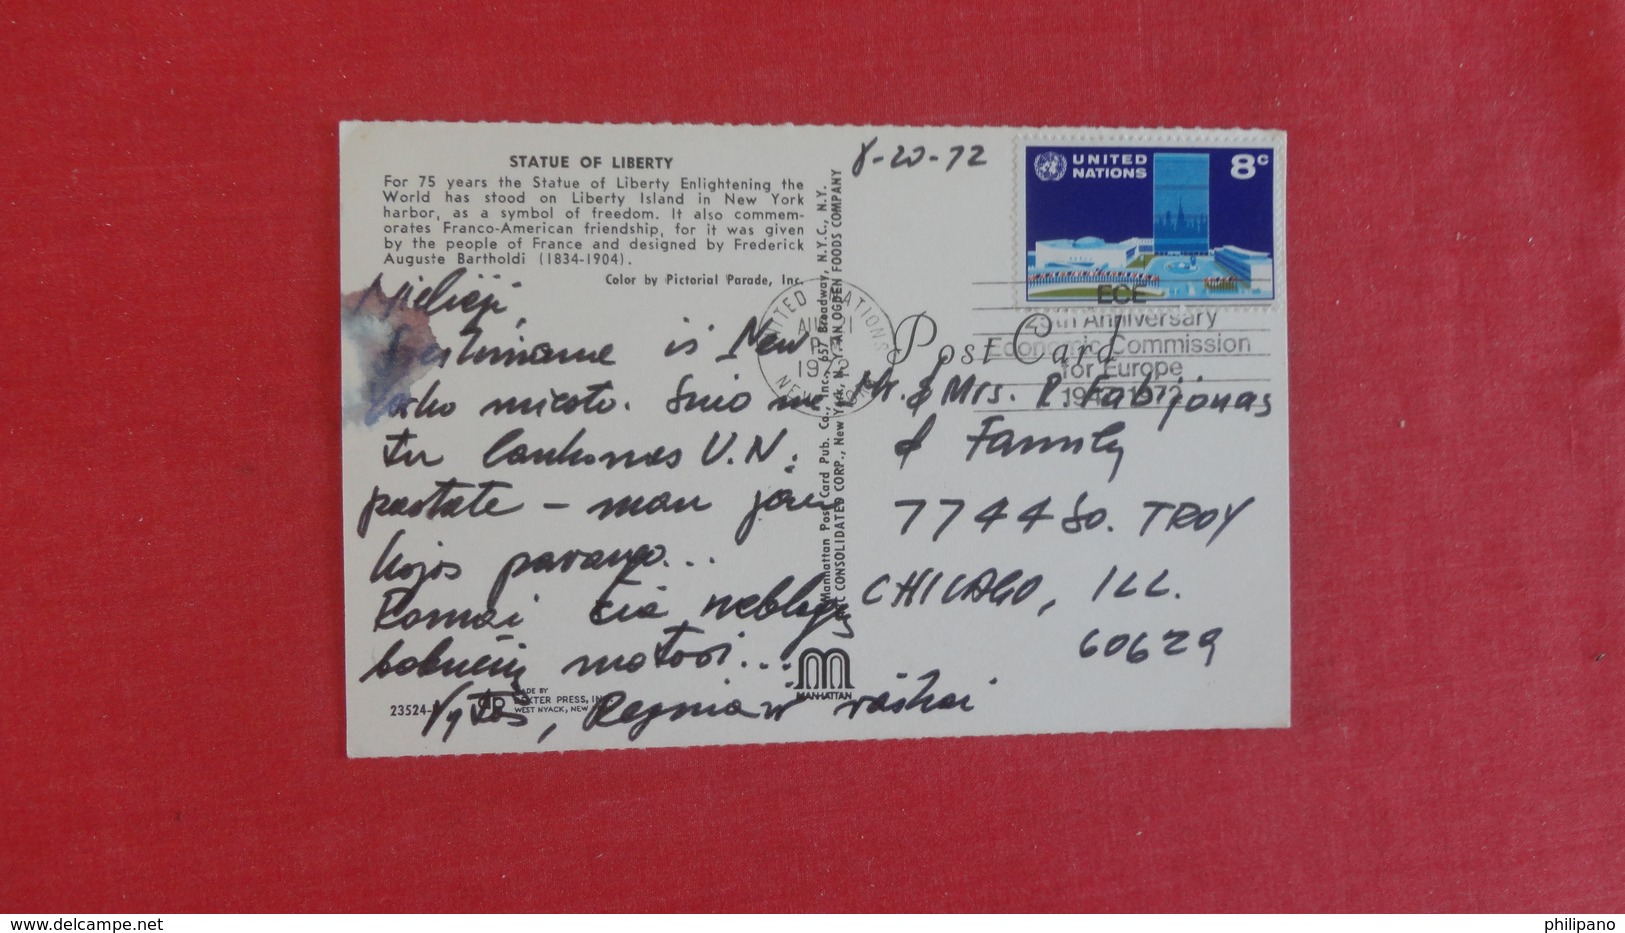 STATUE OF LIBERTY
For 75 years the Statue of Liberty Enlightening the
World has stood on Liberty Island in New York
harbor, as a symbol of freedom. It also commem-
orates Franco-American friendship, for it was given
by the people of France and designed by Frederick
Auguste Bartholdi (1834-1904).
Color by Pictorial Parade, Inc.
Mielieji,
is New
Yorko miesto. Šiuo me
tu lankomas U.N.
pastate – man jau
kojos pavargo...
Romai čia neblogų
bobučių matosi...
Vytas, Regina ir vaikai
23524-
MADE BY
DEXTER PRESS, INC.
WEST NYACK, NEW
MANHATTAN
Manhattan Post Card Pub. Co., Inc., 657 Broadway, N.Y.C., N.Y.
CONSOLIDATED CORP., New York, N. Y. AN OGDEN FOODS COMPANY
8-20-72
UNITED
NATIONS
8c
UNITED NATIONS
AUG 21
PM
1972
NEW YORK
ECE
25th Anniversary
Economic Commission
for Europe
1947-1972
Post Card
Mr. & Mrs. R. Fabijonas
& Family
7744 So. TROY
CHICAGO, ILL.
60629
delcampe.net
philipano